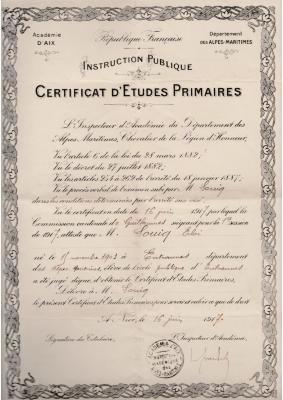 Académie
D'AIX
République Française
Département
DES ALPES-MARITIMES
INSTRUCTION PUBLIQUE
CERTIFICAT D'ÉTUDES PRIMAIRES
L'Inspecteur d'Académie du Département des
Alpes Maritimes, Chevalier de la Légion d'Honneur,
Vu l'article 6 de la loi du 28 mars 1882;
Vu le décret du 27 juillet 1882;
Vu les articles 254 à 262 de l'arrêté du 18 janvier 1887;
Vu le procès-verbal de l'examen subi par M.
dans les conditions déterminées par l'arrêté sus-visé;
Vu le certificat en date du 16 juin 1917 par lequel la
Commission cantonale de Guillaumes siégeant pour la Session
de 1917 atteste que M.
né le novembre à Entraunes département
des Alpes Maritimes, élève de l'école publique d'Entraunes
a été jugé digne d'obtenir le Certificat d'Études Primaires,
Délivre à M.
le présent Certificat d'Études Primaires pour servir et valoir ce que de droit.
A Nice, le 16 juin 1917.
Signature du Titulaire,
L'Inspecteur d'Académie,